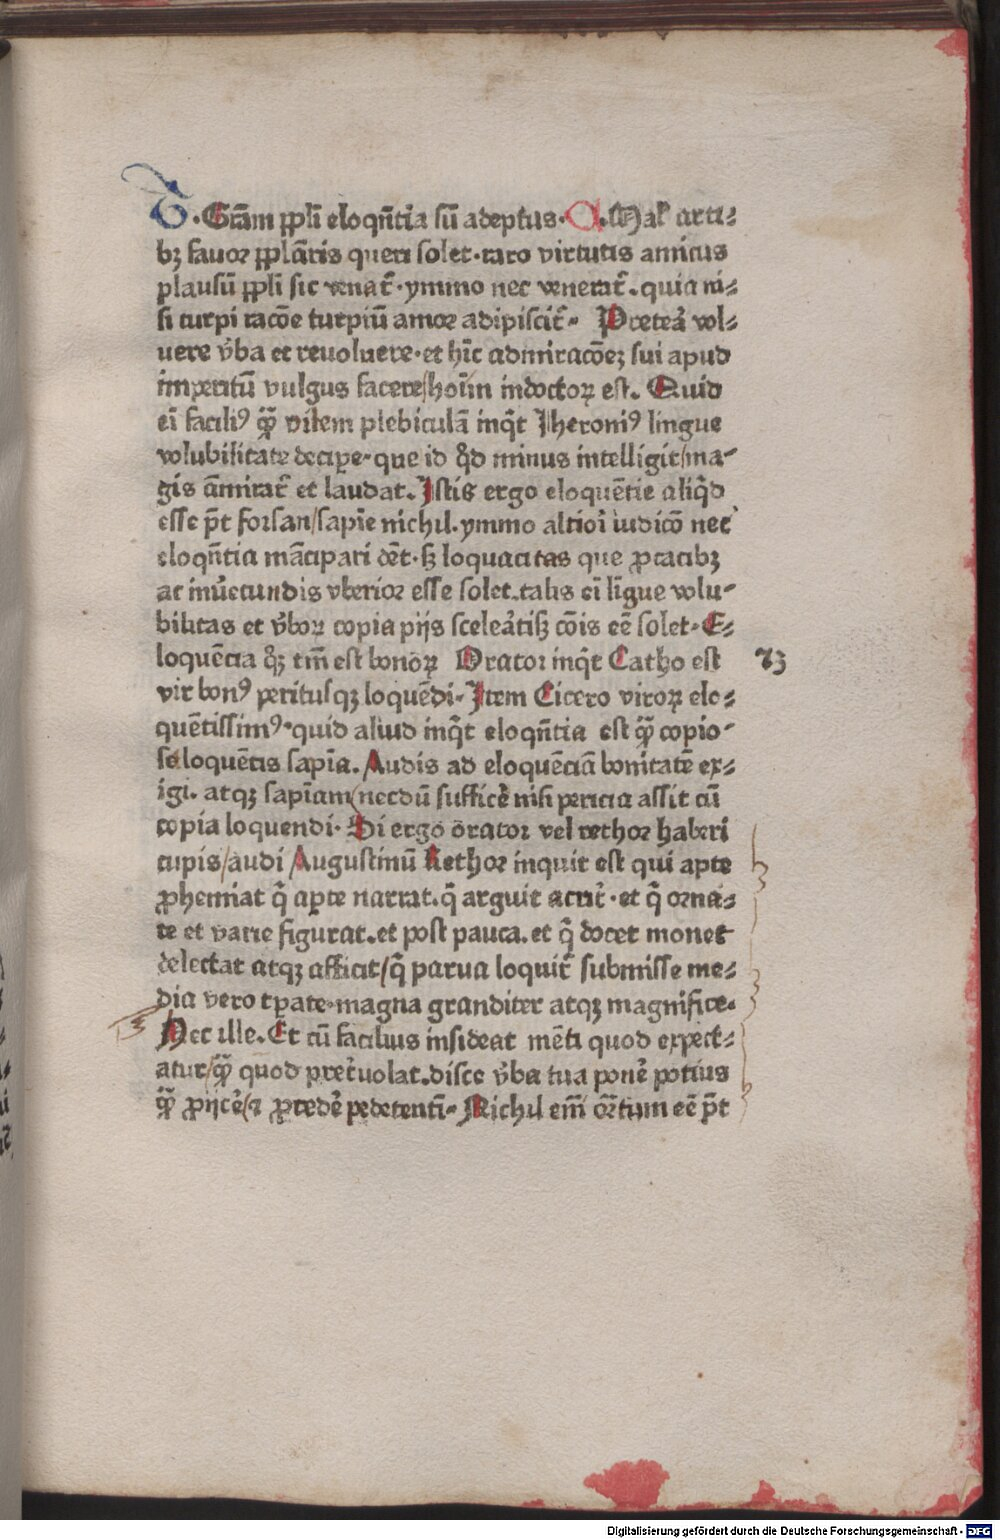 G. Grãm ꝓpl̃i eloqñtia sũ adeptus. A. Mal arti⸗
bꝫ fauor ꝓpl̃aris queri solet. raro virtutis amicus
plausũ ꝓpl̃i sic venat̃. ymmo nec venerat̃. quia ni⸗
si turpi racõe turpiũ amor adipiscit̃. Preteã vol⸗
uere v̾ba et reuoluere. et hĩc admiracõeꝫ sui apud
imperitũ vulgus facere/hoĩm indoctoꝝ est. Quid
eĩ facilꝰ ꝙ̃ vilem plebiculã inqͥt Iheronimꝰ lingue
volubilitate decipe. que id qͦd minus intelligit/ma⸗
gis ãmirat̃ et laudat. Istis ergo eloquẽtie aliqͥd
esse pt̃ forsan/sapĩe nichil. ymmo altiori iudicõ nec
eloqñtia mãcipari dẽt. sꝫ loquacitas que ꝓcacibꝫ
ac inũecundis vberior esse solet. talis eĩ lĩgue volu⸗
bilitas et v̾boꝝ copia pijs sceleãtisꝫ cõis eẽ solet. E⸗
loquẽcia qͣꝫ tm̃ est bonoꝝ Orator inqͥt Catho est
vir bonꝰ peritusqꝫ loquẽdi. Item Cicero viroꝝ elo⸗
quẽtissimꝰ. quid aliud inqͥt eloqñtia est ꝙ̃ copio⸗
se loquẽtis sapĩa. Audis ad eloquẽciã bonitatẽ ex⸗
igi. atqꝫ sapĩam/necdũ sufficẽ nisi pericia assit cũ
copia loquendi. Si ergo orator vel rethor haberi
cupis/audi Augustinũ Rethor inquit est qui apte
ꝓhemiat q̃ apte narrat. q̃ arguit acrit̾. et q̃ orna⸗
te et varie figurat. et post pauca. et q̃ docet monet
delectat atqꝫ afficit/q̃ parua loquit̃ submisse me⸗
dia vero tꝑate. magna granditer atqꝫ magnifice.
Hec ille. Et cũ facilius insideat mẽti quod expect⸗
atur/ꝙ̃ quod pret̾uolat. disce v̾ba tua ponẽ potius
ꝙ̃ ꝓijcẽ/⁊ ꝓcedẽ pedetentĩ. Nichil em̃ orñtum eẽ pt̃
73
Digitalisierung gefördert durch die Deutsche Forschungsgemeinschaft - DFG